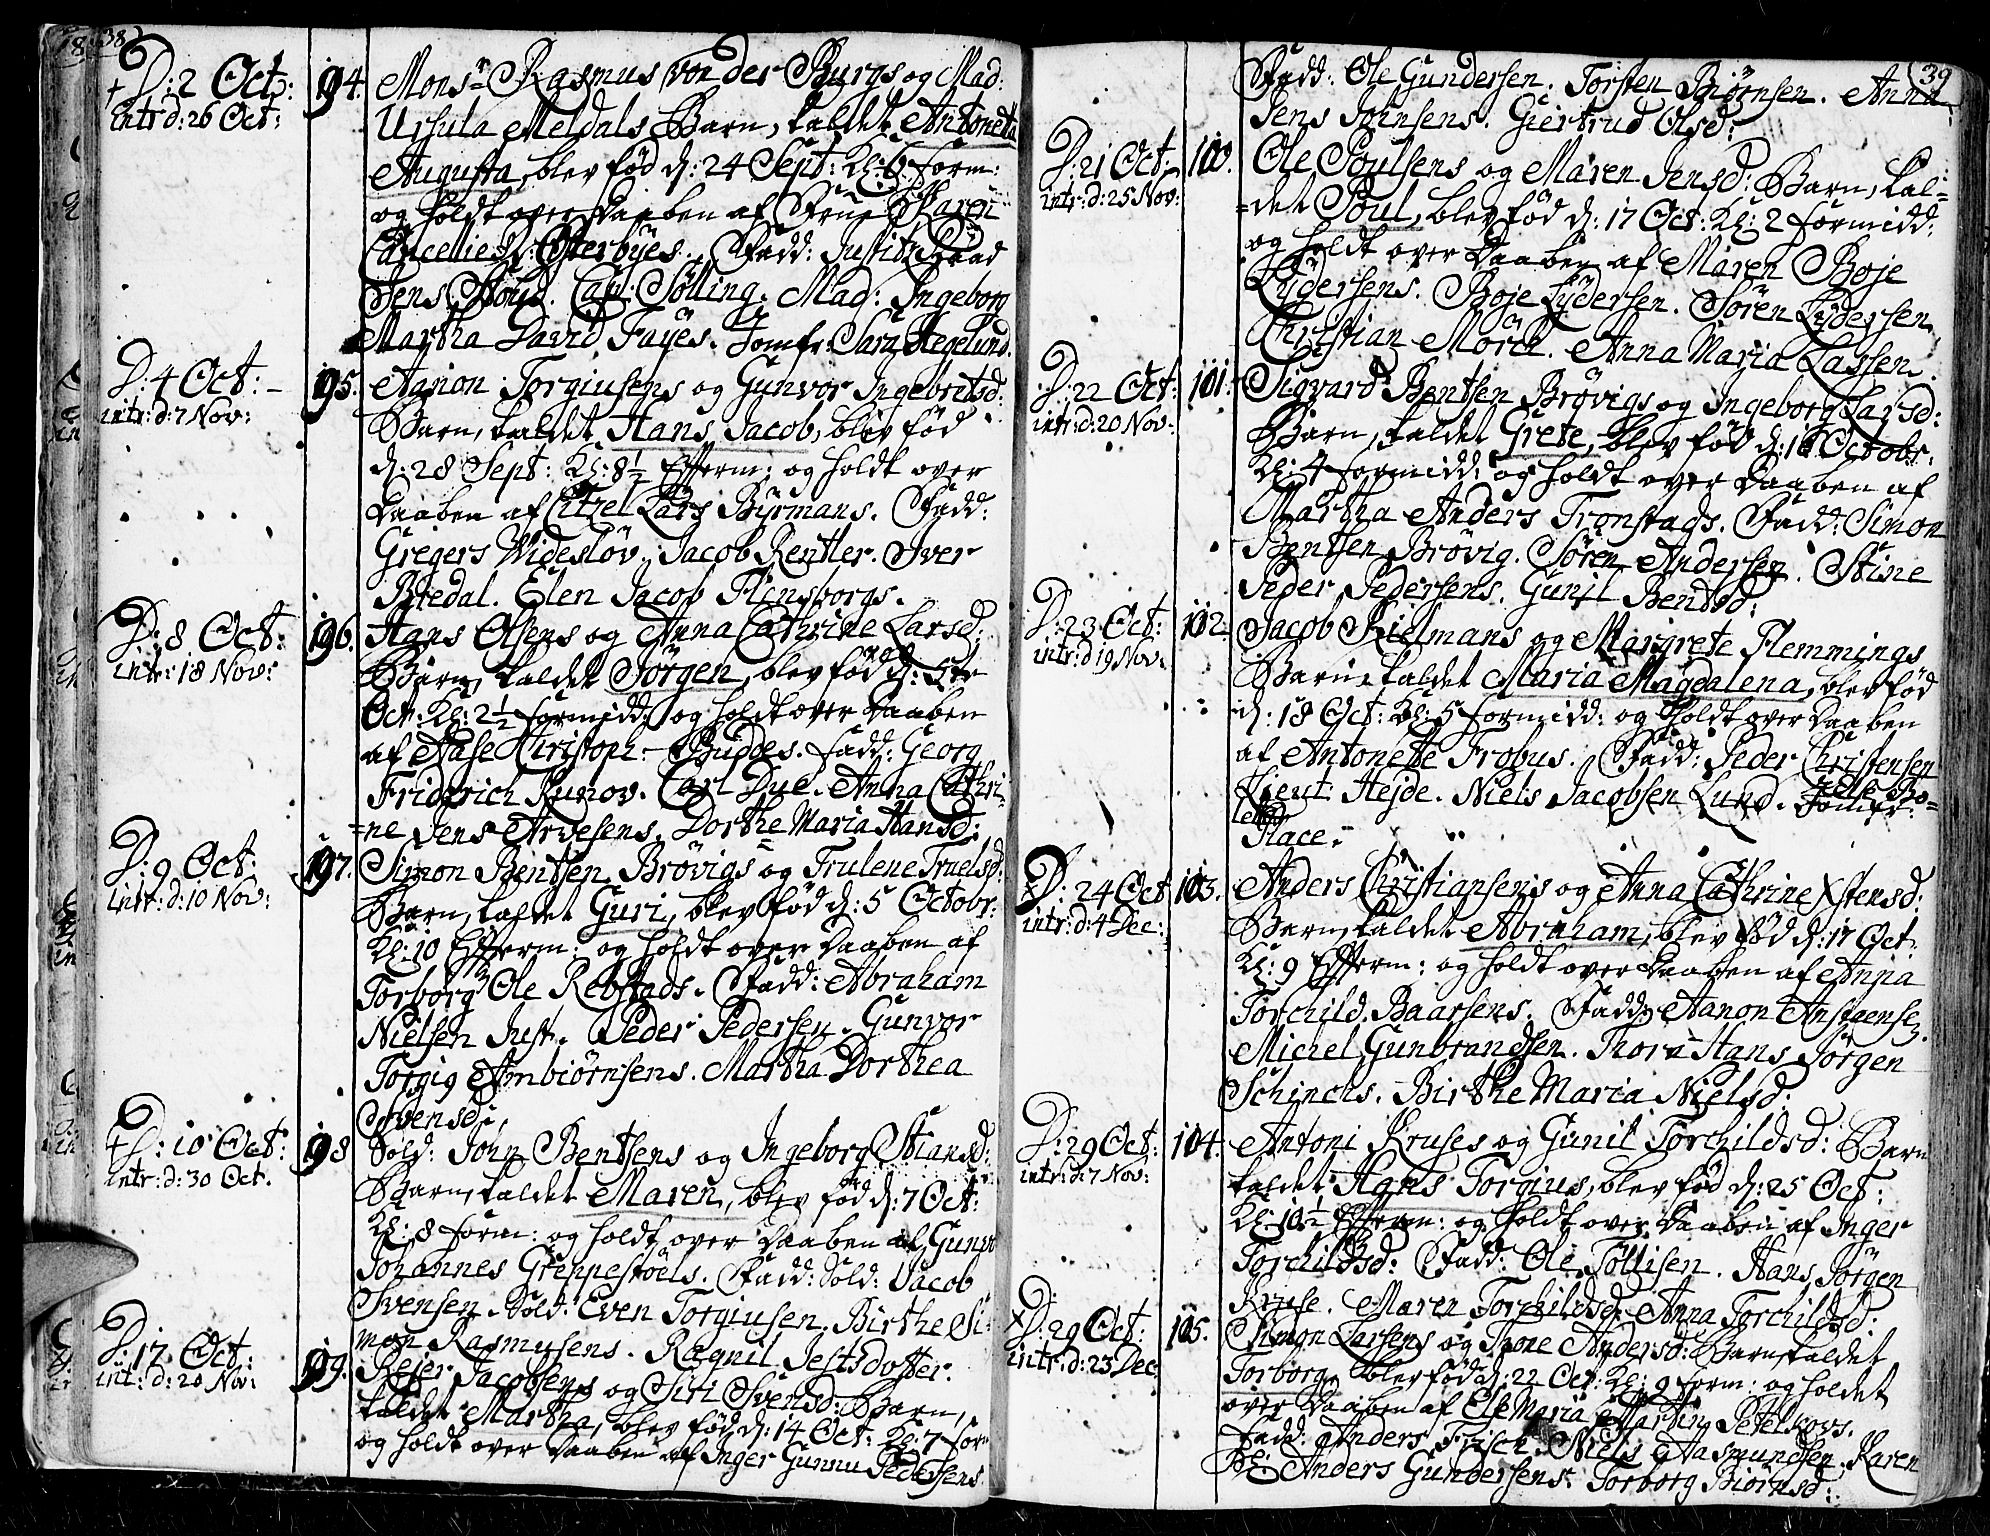 38
D: 2 Oct:
intr d: 26 Oct:
194.
Mons:r Rasmus von der Burgs og Mad:
Ursula Meldals Barn, kaldet Antonetta
Augusta, blev fød d: 24 Sept: Kl: 6 form:
og holdt over Daaben af Frue Karen
Cancellie R: Osterbyes. Fadd: Justitz Raad
Jens Capt: Sølling. Mad: Ingeborg
Martha David Fayes. Jomfr: Sara Hegelund.
D: 4 Oct:
intr: d: 7 Nov:
195.
Aanon Torgiusens og Gunvor Ingebretsd:
Barn, kaldet Hans Jacob, blev fød
d: 28 Sept: Kl: 8½ Efferm: og holdt over
Daaben af Citzel Lars Byrmans. Fadd:
Gregers Videsløv. Jacob Rentler. Iver
Bredal. Elen Jacob Flensborgs.
D: 8 Oct:
intr: 18 Nov:
196.
Hans Olsens og Anna Cathrine Larsd:
Barn, kaldet Jörgen, blev fød d: 5te
Oct: Kl: 2½ formidd: og holdt over Daaben
af Aase Christoph: Buddes. Fadd: Georg
Friderich Runov. Carl Dye. Anna Cathri=
=ne Jens Arvesens. Dorthe Maria Hansd:
D: 9 Oct:
intr: d: 10 Nov:
197.
Simon Bentsen Brövigs og Trulene Truelsd:
Barn, kaldet Guri, blev fød d: 5 Octobr:
Kl: 10 Efferm: og holdt over Daaben af
Torborg Ole Rebstads. Fadd: Abraham
Nielsen Just. Peder Pedersen. Gunvor
Torgig Ambiörnsens. Martha Dorthea
Svensd:
D: 10 Oct:
intr: d: 30 Oct.
198
Sold: John Bentsens og Ingeborg Stiansd:
Barn, kaldet Maren, blev fød d: 7 Oct:
Kl: 8 form: og holdt over Daaben af Gunvor
Johannes Greppestöels. Fadd: Sold: Jacob
Svensen. Sold: Even Torgiusen. Birthe Si=
mon Rasmusens. Ragnil Jestsdotter.
D: 17 Oct:
int: d: 20 Nov:
199.
Rejer Jacobsens og Siri Svensd: Barn,
kaldet Martha, blev fød d: 14 Oct: Kl: 7 form
og holdt over Daaben af Inger Gunnu Pedersens.
39
Fadd: Ole Gundersen. Torsten Biörnsen. Anna
Jens Johnsens. Giertrud Olsd:
D: 21 Oct:
intr: d: 25 Nov:
100.
Ole Poulsens og Maren Jensd: Barn, kal=
=det Poul, blev fød d: 17 Oct: Kl: 2 formidd:
og holdt over Daaben af Maren Boje
Lydersens. Boje Lydersen. Sören Lydersen
Christian Mörch. Anna Maria Lassen.
D: 22 Oct:
intr: d: 20 Nov:
101.
Sigvard Bentsen Brövigs og Ingeborg Larsd:
Barn, kaldet Grete, blev fød d: 16 Octobr:
Kl: 4 formidd: og holdt over Daaben af
Martha Anders Tronstads. Fadd: Simon
Bentsen Brövig. Sören Andersen. Stine
Peder Pedersens. Gunil Bentsd:
D: 23 Oct:
intr: d 19 Nov:
102.
Jacob Kielmans og Margrete Flemmings
Barn, kaldet Maria Magdalena, blev fød
d: 18 Oct: Kl: 5 formidd: og holdt over Daaben
af Antonette Frobus. Fadd: Peder Christensen
Lieut: Hejde. Niels Jacobsen Lund. Jomfr:
Place.
D: 24 Oct
intr: d: 4 Dec:
103.
Anders Christiansens og Anna Cathrine Xstensd:
Barn, kaldet Abraham, blev fød d: 17 Oct:
Kl: 9 Efferm: og holdt over Daaben af Anna
Torchild Baarsens. Fadd: Aanon Anstaensen.
Michel Gunbrandsen. Thore Hans Jörgen
Schinchs. Birthe Maria Nielsd:
D: 29 Oct:
intr: d: 7 Nov:
104.
Antoni Kruses og Gunil Torchildsd: Barn
kaldet Hans Torgius, blev fød d: 25 Oct:
Kl: 10½ Efferm: og holdt over Daaben af Inger
Torchildsd: Fadd: Ole Töllisen. Hans Jörgen
Kruse. Maren Torchildsd: Anna Torchildsd:
D: 29 Oct:
intr: d: 23 Dec
105.
Simon Larsens og Thone Andersd: Barn, kaldet
Torborg, blev fød d: 22 Oct: Kl: 9 form: og holdet
over Daaben af Else Maria Martin Petelskovs.
Fadd: Anders Frisch. Niels Aasmundsen. Karen
Anders Gundersens. Torborg Biörnsd: